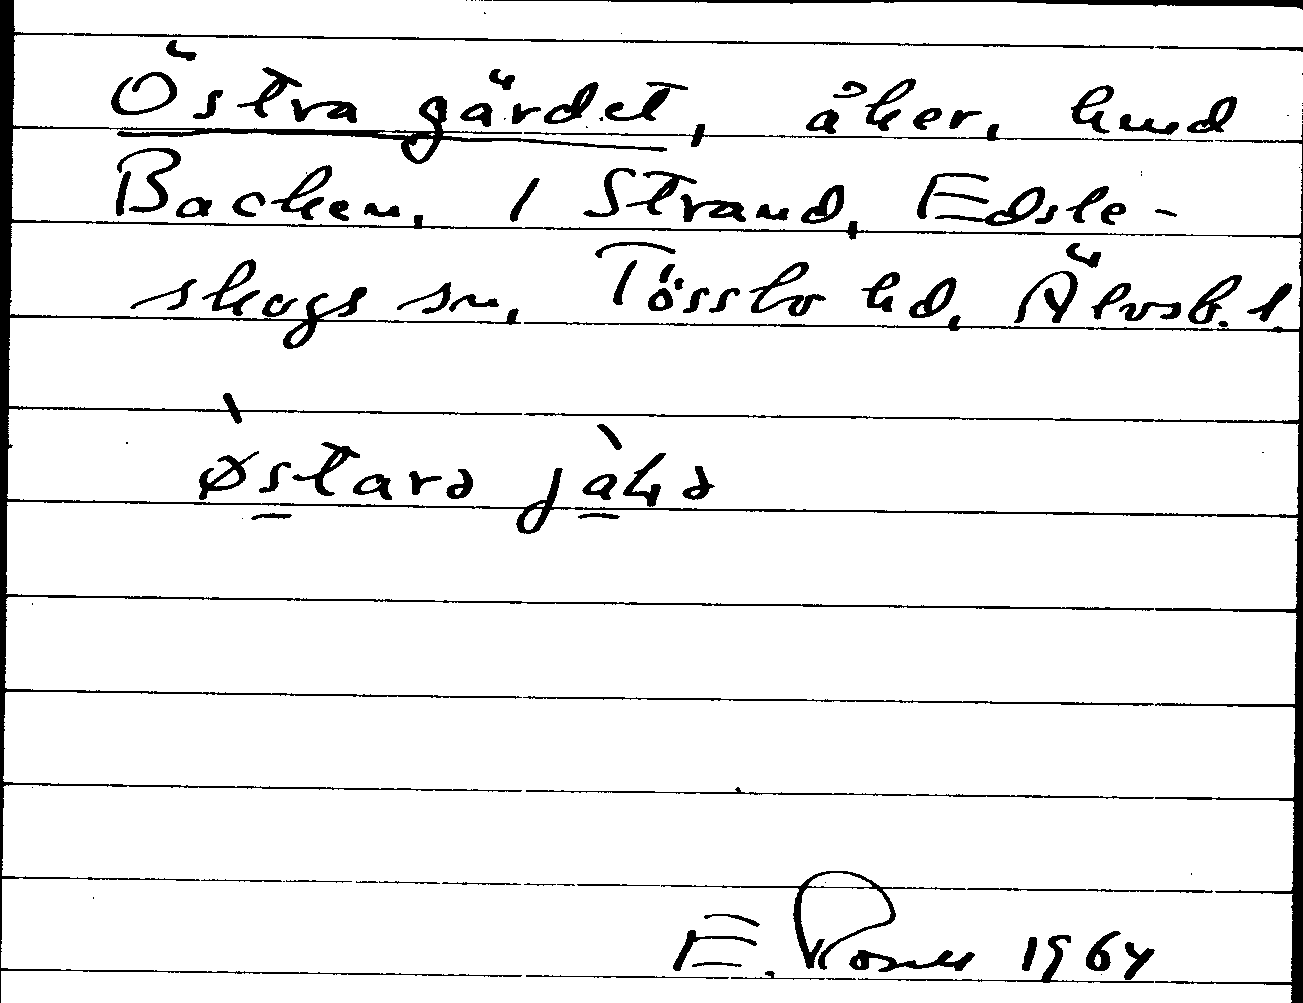 Östra gärdet, åker, hmd
Backen, 1 Strand, Edsle-
skogs sn, Tössbo hd, Älvsb. l.
E. Rosell 1964